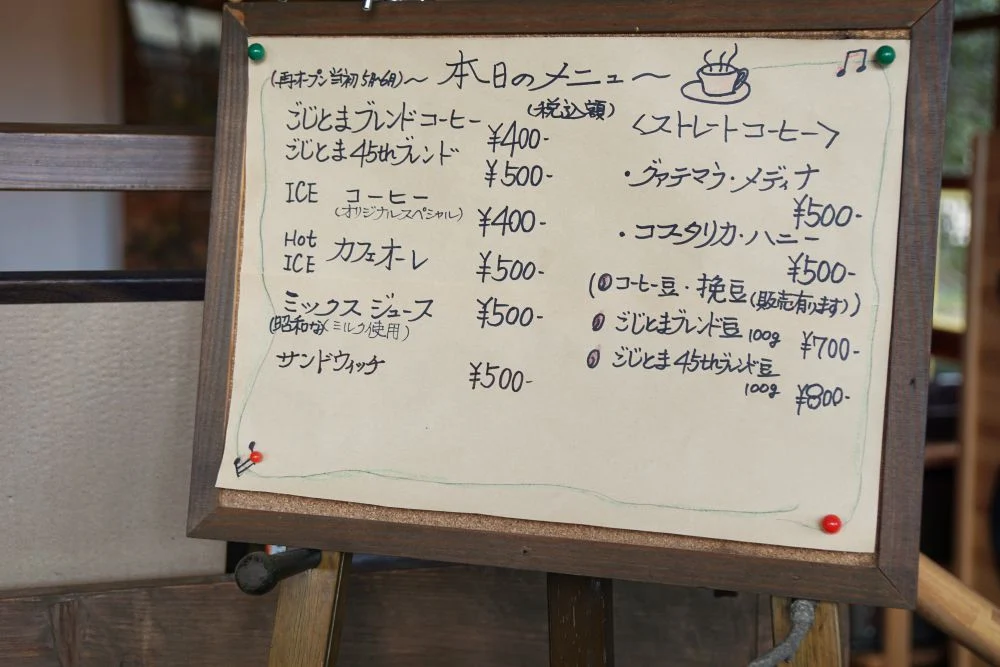 (再オープン当初5月~6月)~本日のメニュー~
(税込額)
ごじとまブレンドコーヒー ¥400-
ごじとま45thブレンド ¥500-
ICE コーヒー
(オリジナルスペシャル) ¥400-
Hot
ICE カフェオーレ ¥500-
ミックスジュース ¥500-
(昭和な)(ミルク使用)
サンドウィッチ ¥500-
<ストレートコーヒー>
・グァテマラ・メディナ
¥500-
・コスタリカ・ハニー
¥500-
(コーヒー豆・挽豆(販売有ります))
ごじとまブレンド豆 100g ¥700-
ごじとま45thブレンド豆
100g ¥800-